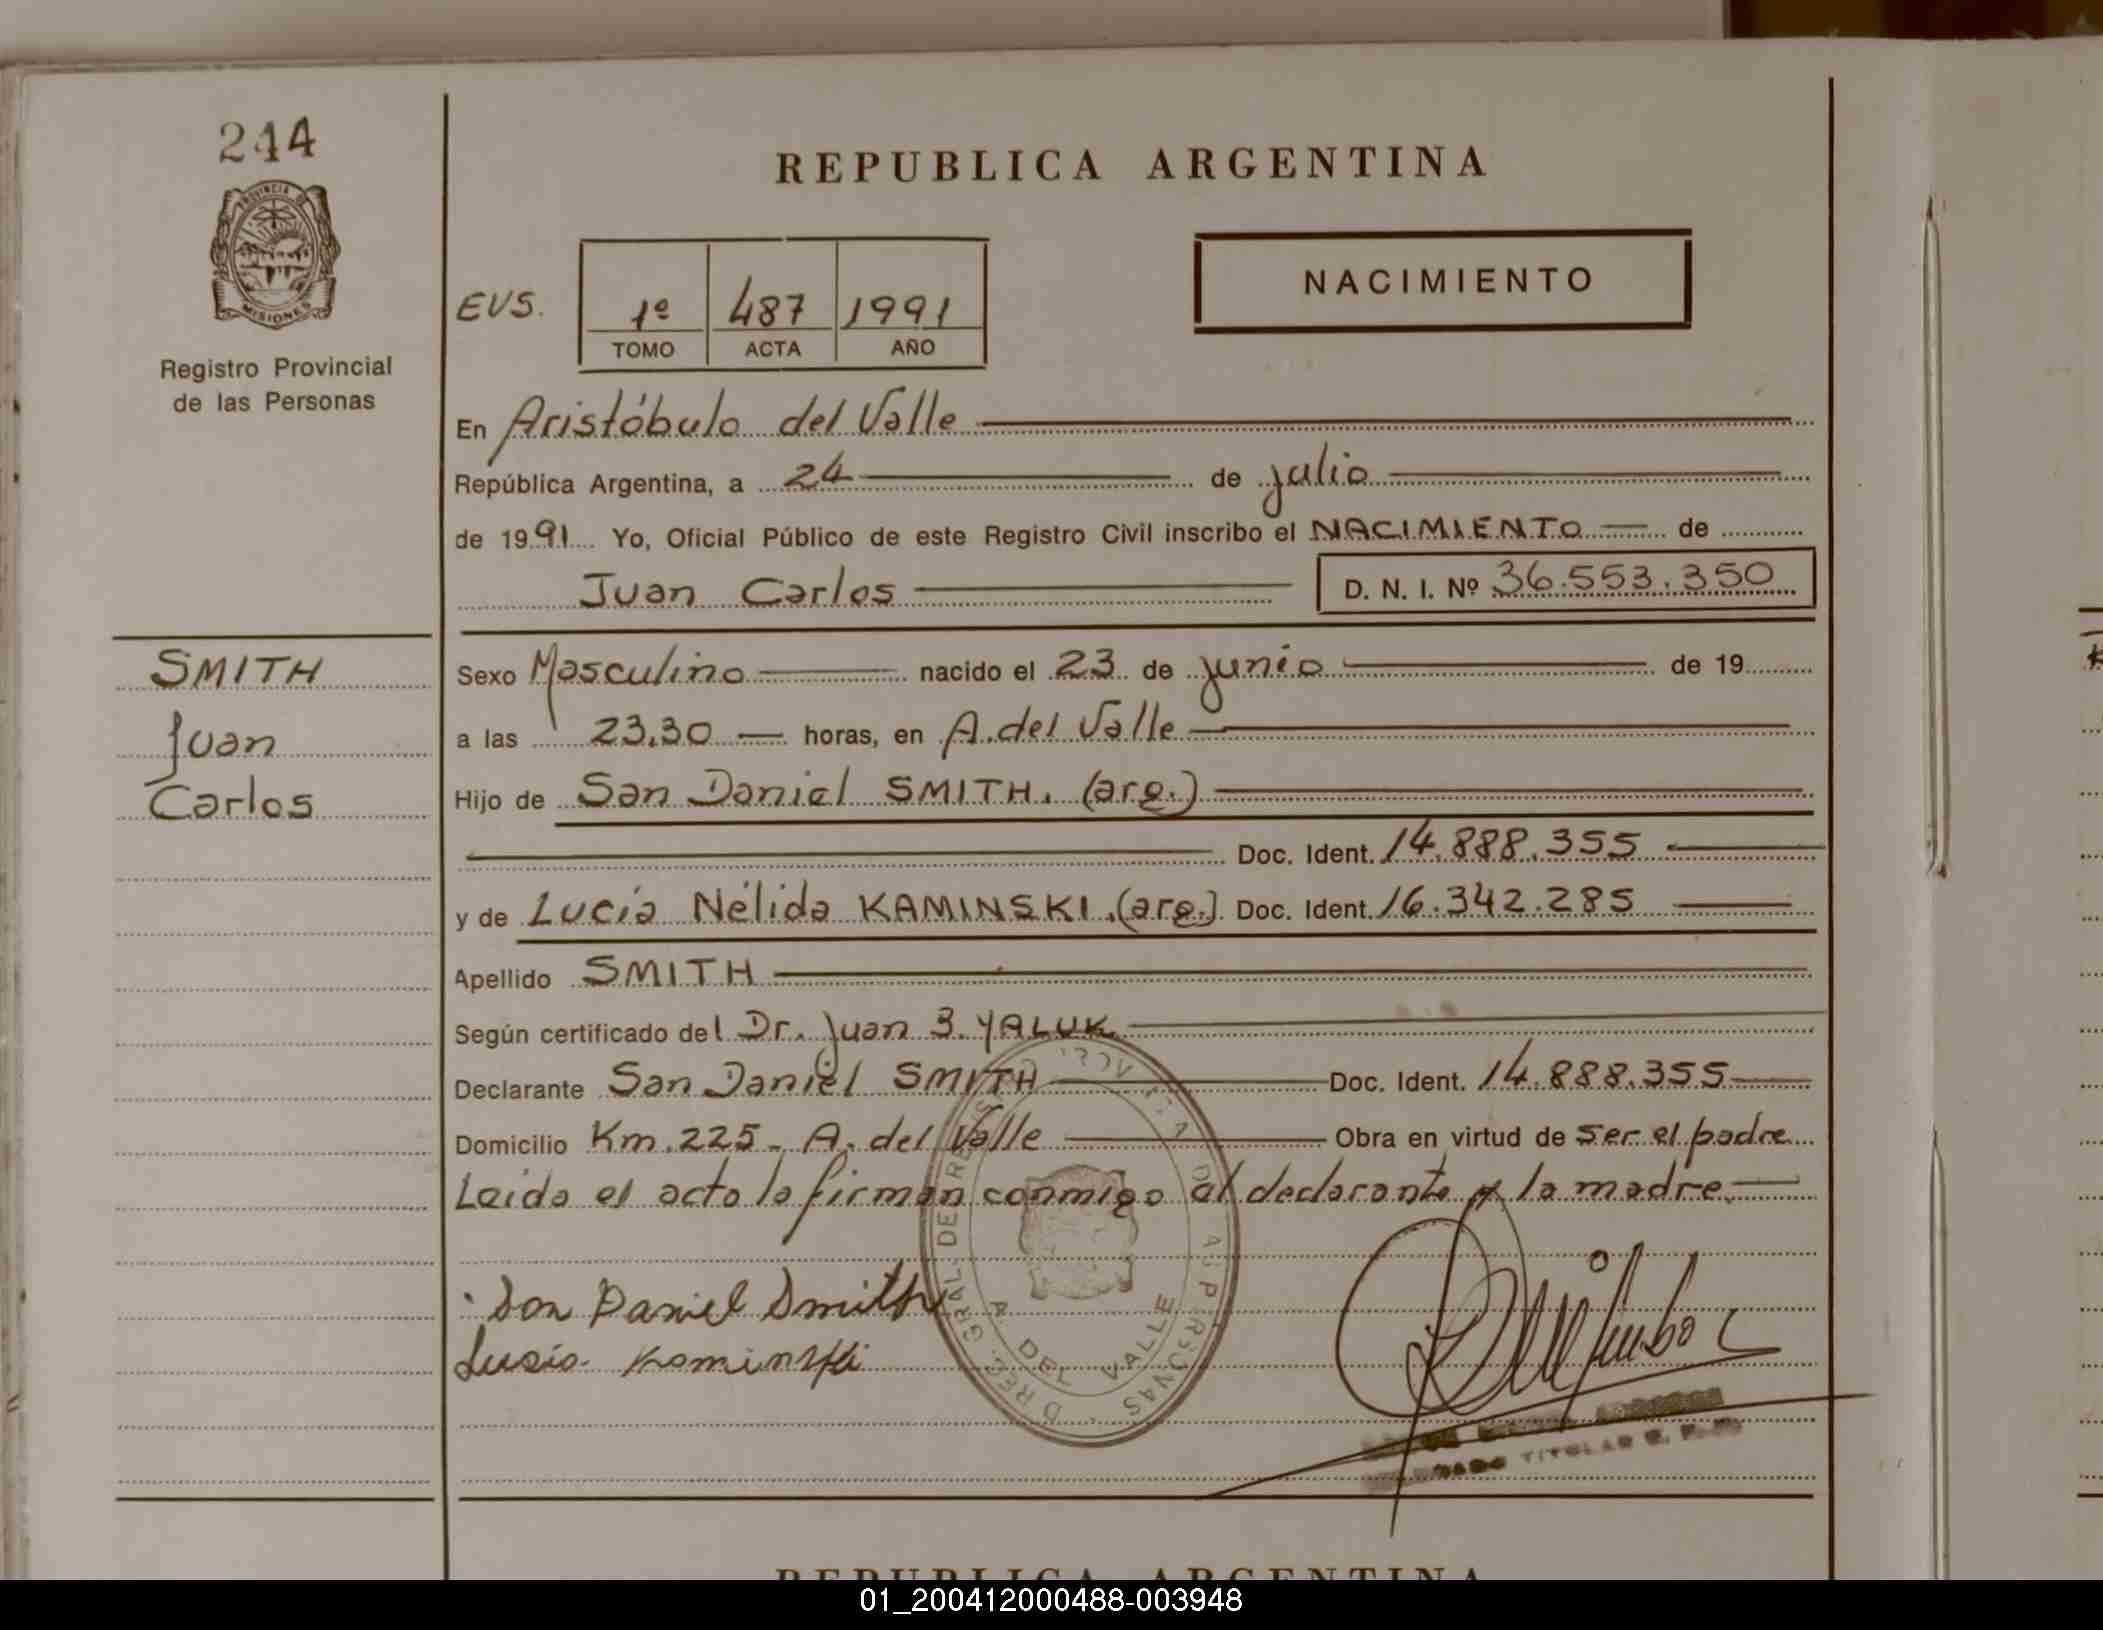 244
PROVINCIA DE
MISIONES
Registro Provincial
de las Personas
REPUBLICA ARGENTINA
NACIMIENTO
EVS.
1º 487 1991
TOMO ACTA AÑO
En Aristóbulo del Valle
República Argentina, a 24 de julio
de 1991 Yo, Oficial Público de este Registro Civil inscribo el NACIMIENTO de
Juan Carlos D. N. I. Nº 36.553.350
SMITH
Juan
Carlos
Sexo Masculino nacido el 23 de junio de 19
a las 23,30 horas, en A. del Valle
Hijo de San Daniel SMITH. (arg.)
Doc. Ident. 14.888.355
y de Lucía Nélida KAMINSKI. (arg.) Doc. Ident. 16.342.285
Apellido SMITH
Según certificado del Dr. Juan B. YALUK
Declarante San Daniel SMITH Doc. Ident. 14.888.355
Domicilio Km. 225 - A. del Valle Obra en virtud de ser el padre
Leída el acta la firman conmigo el declarante y la madre.
Son Daniel Smith
Lucía Kaminski
A DEL VALLE
TITULAR
REPUBLICA ARGENTINA
01_200412000488-003948